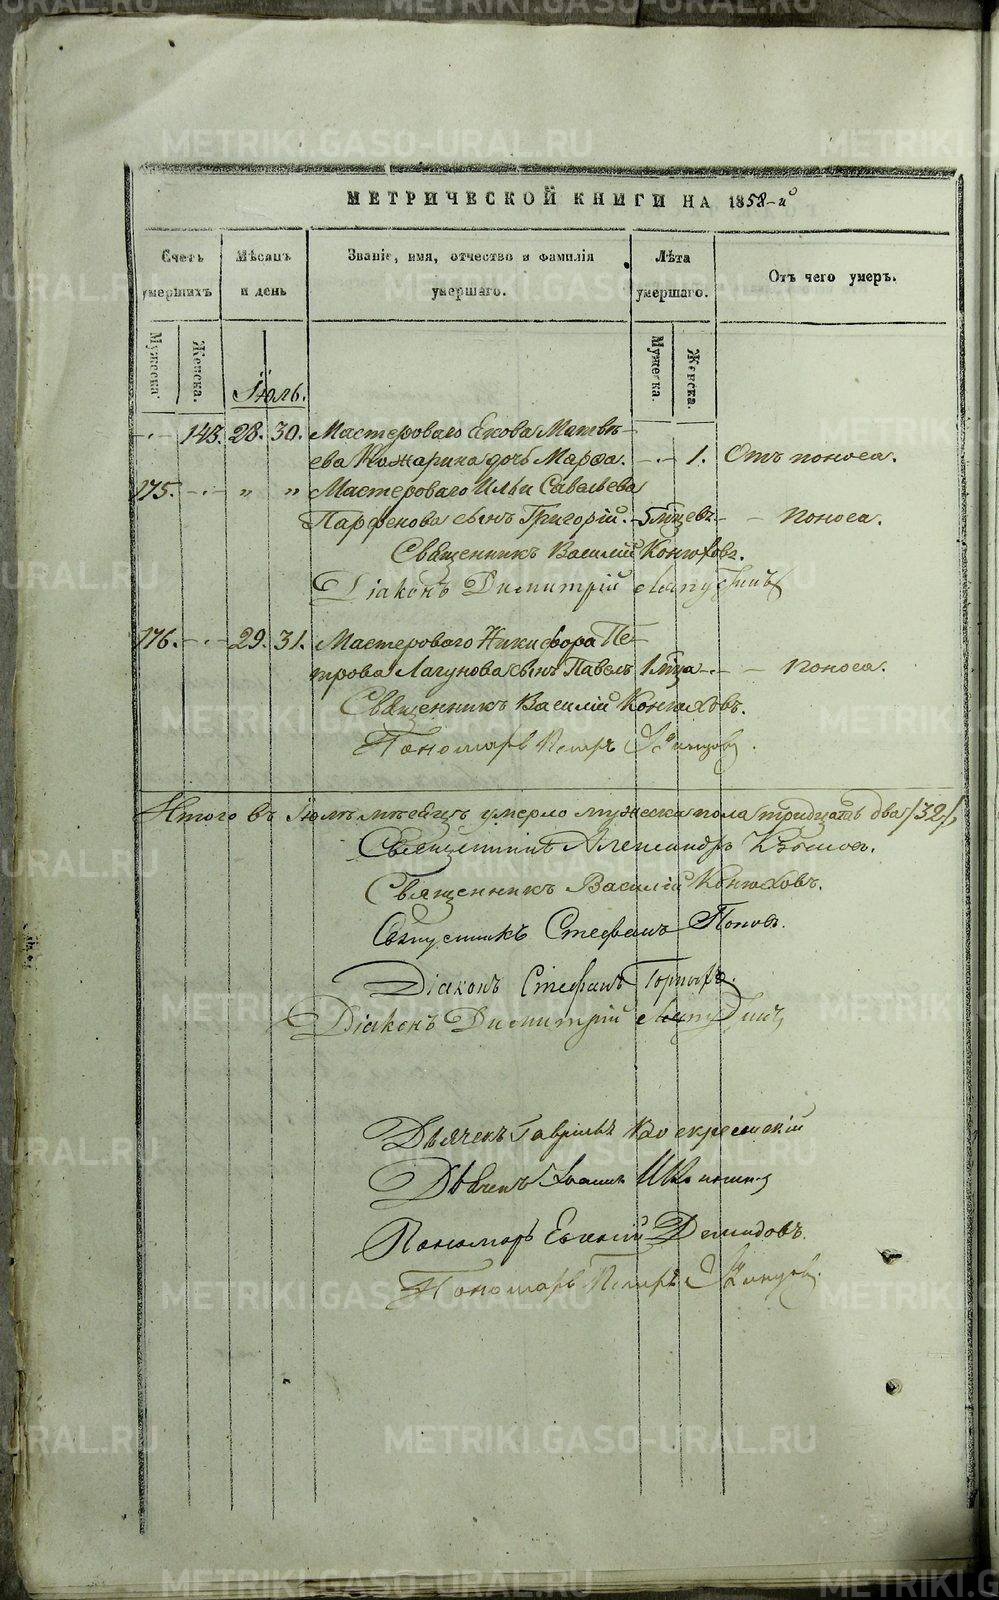 МЕТРИЧЕСКОЙ КНИГИ НА 1858-й
Счетъ умершихъ
Мѣсяцъ и день
Званіе, имя, отчество и фамилія умершаго.
Лѣта умершаго.
Отъ чего умеръ.
Мужеска. Женска.
Мужеска. Женска.
Іюль.
143. 28. 30. Мастероваго Якова Матвѣ-
ева Кожарина дочь Марѳа. 1. Отъ поноса.
175. " " Мастероваго Ильи Савельева
Парфенова сынъ Григорій. 5 мѣцевъ - поноса.
Священникъ Василій Конюховъ.
Діаконъ Димитрій
176. 29. 31. Мастероваго Никифора Пе-
трова Лагунова сынъ Павелъ 1 мца - поноса.
Священникъ Василій Конюховъ.
Пономарь Петръ
Итого въ Іюлѣ мѣсяцѣ умерло мужеска пола тридцать два /32/
Священникъ Александръ
Священникъ Василій Конюховъ.
Священникъ Стефанъ Поповъ.
Діаконъ Стефанъ Горныхъ.
Діаконъ Димитрій
Дьячекъ Гавріилъ Воскресенскій
Дьячекъ Іоаннъ
Пономарь Евгеній Демидовъ.
Пономарь Петръ
METRIKI.GASO-URAL.RU